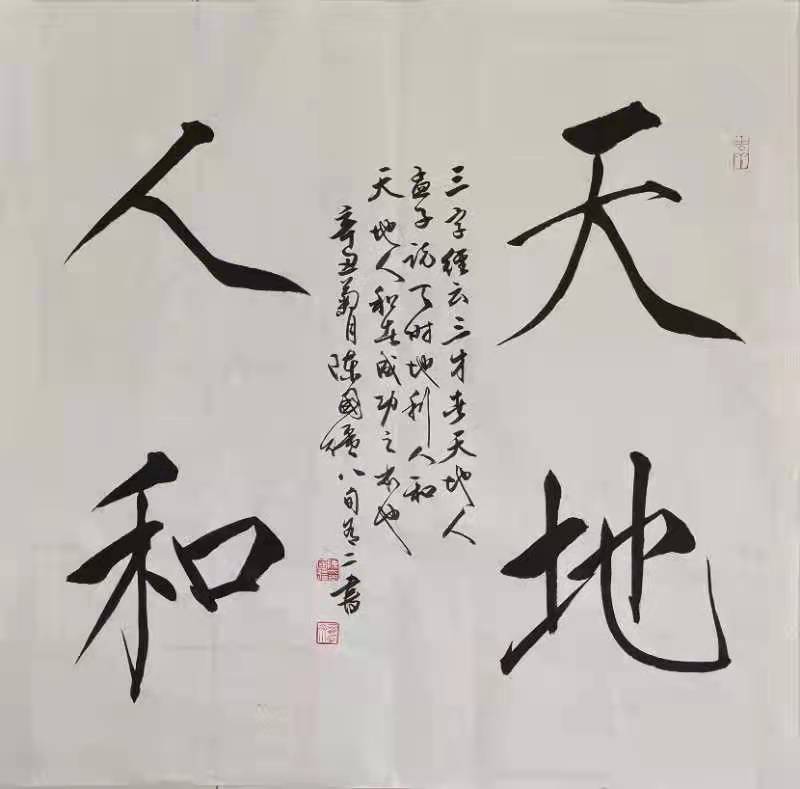 天地
人和
三字經云三才者天地人
孟子说天时地利人和
天地人和者成功之本也
辛丑菊月陈國儒八旬有二書